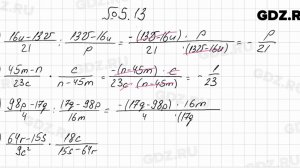 GDZ.RU
№5.13
) 16u-13v5/21 : 13v5-16u/p = -(13v5-16u)/21 · p/(13v5-16u) = - p/21
) 45m-n/23c · c/n-45m = -(n-45m) · c/23c · (n-45m) = - 1/23
) 98p-17q/4 : 17q-98p/16m = -(17q-98p) · 16m/4 · (17q
) 64r-15s/9c² · 18c/15s-64r
GDZ.RU